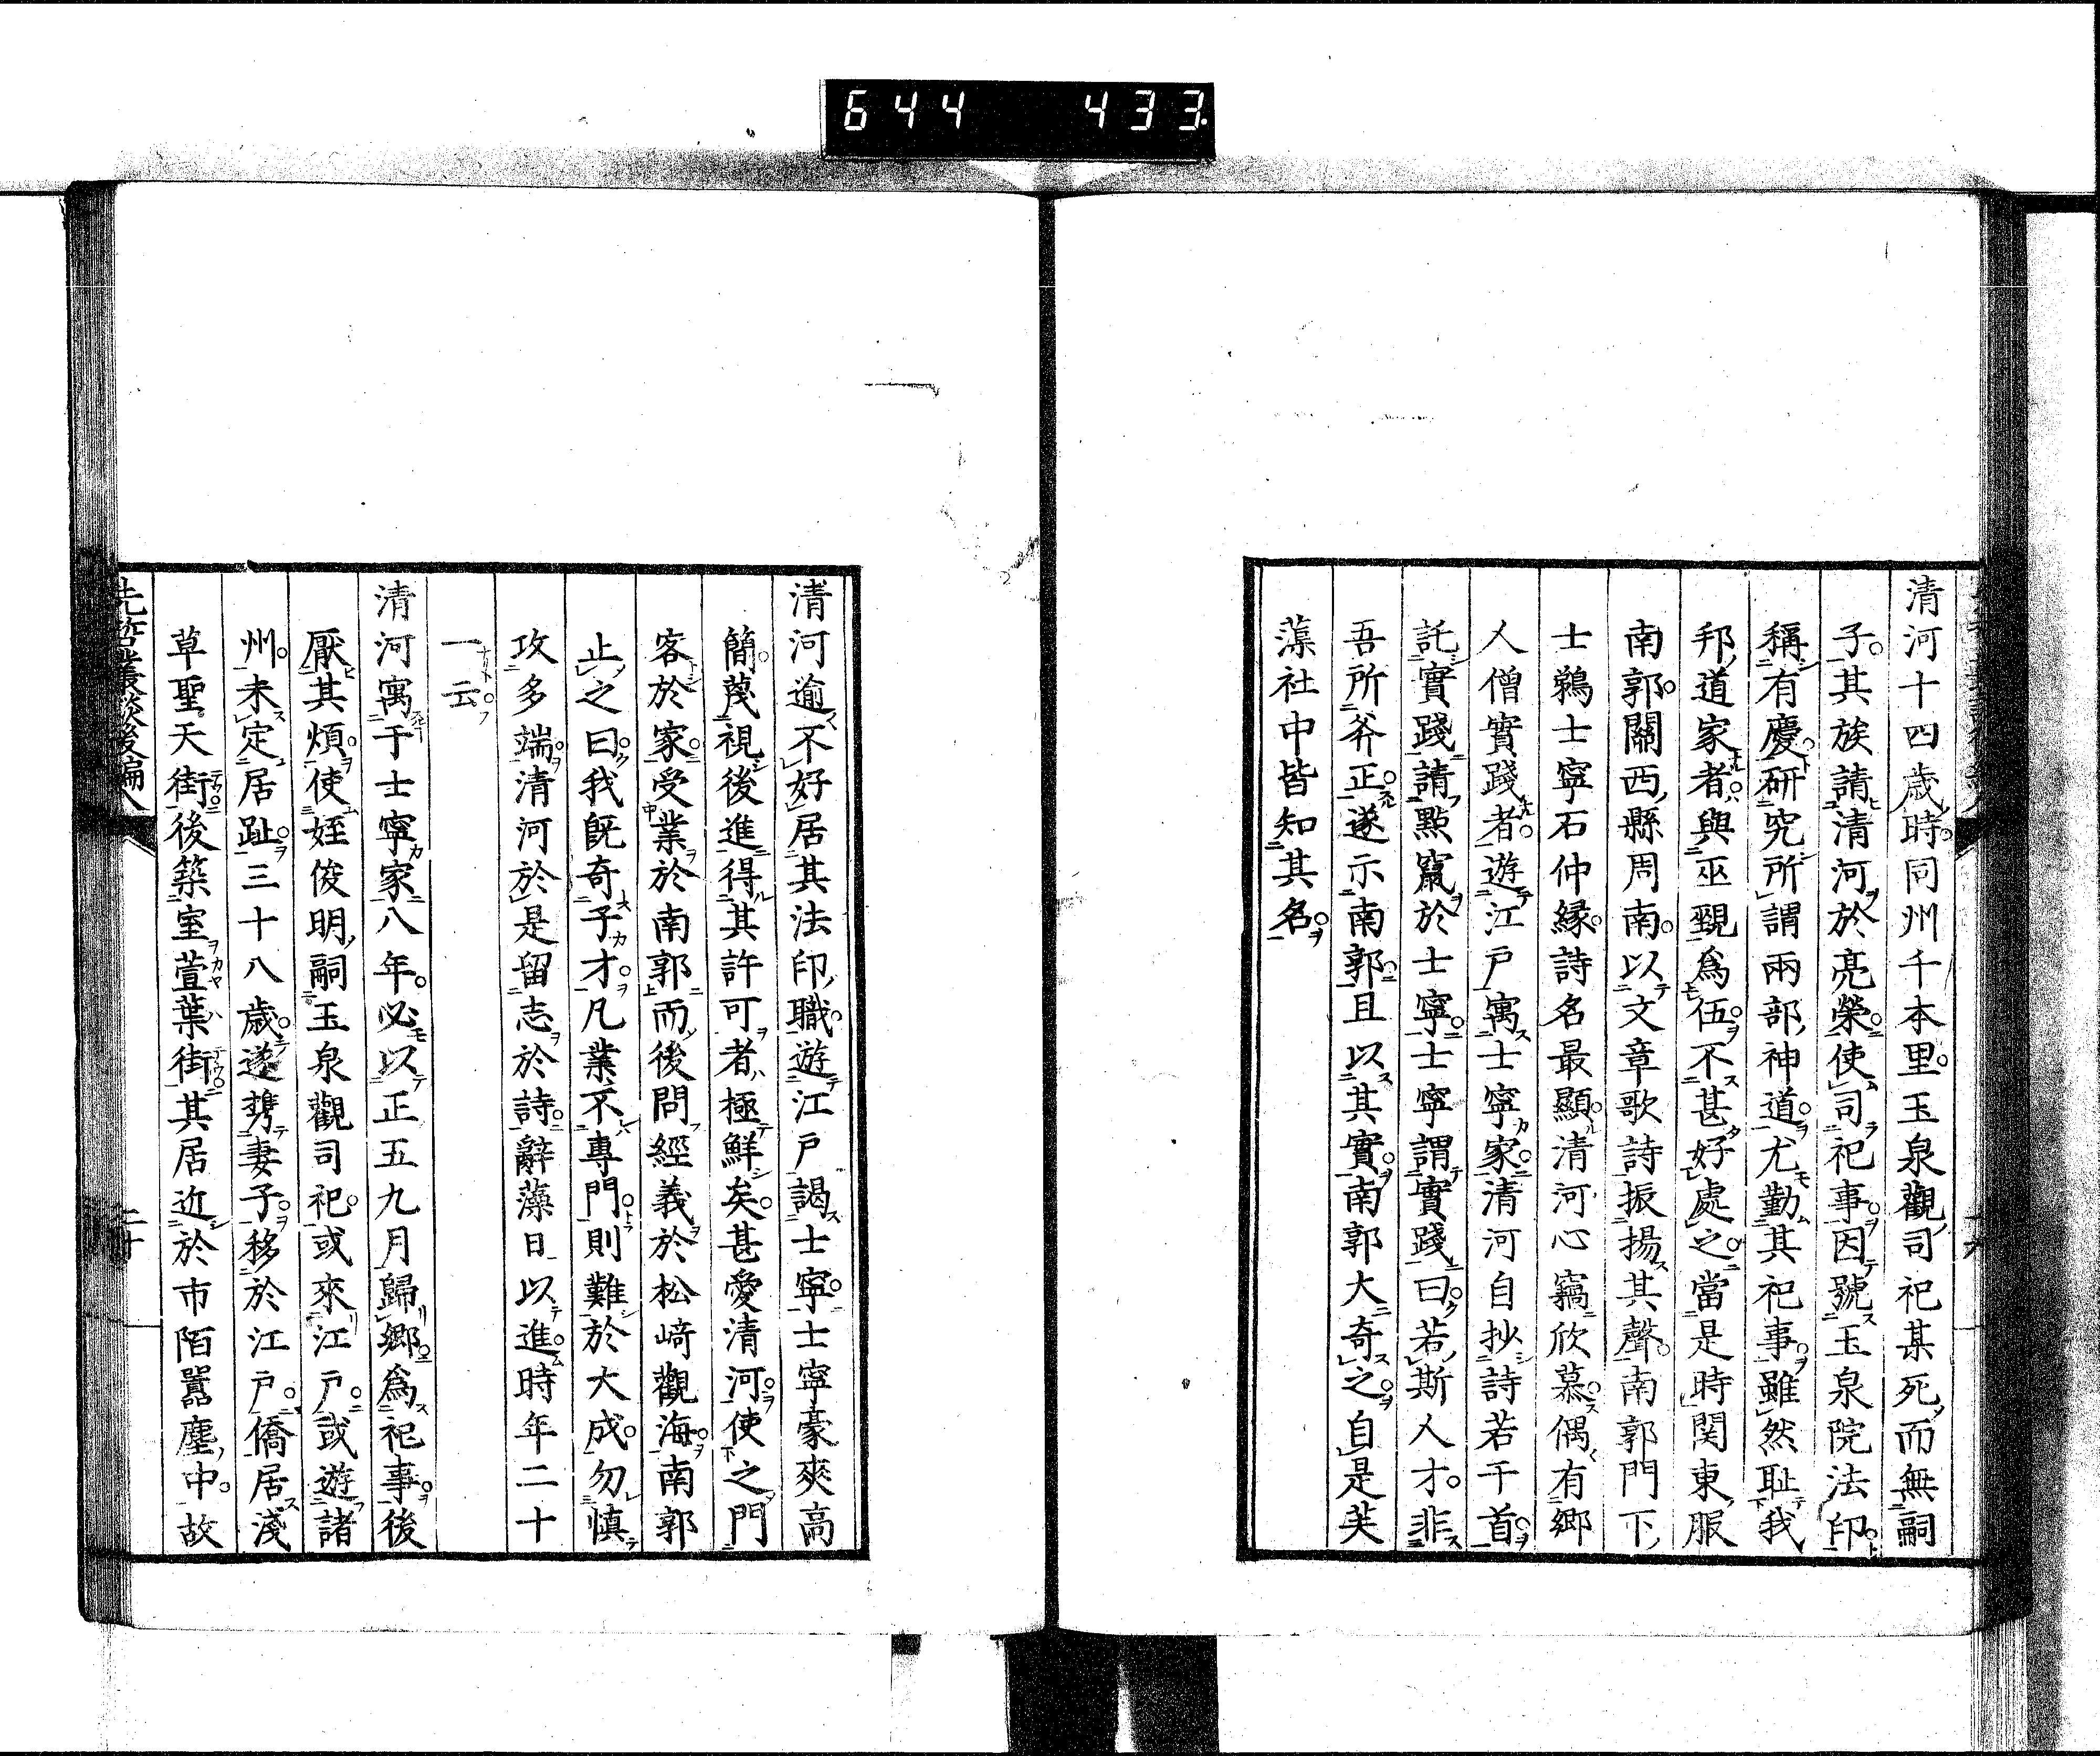 644 433.
清河十四歳時同州千本里玉泉觀司祀某死而無嗣
子其族請清河於亮榮使司祀事因號玉泉院法印
稱有慶研究所謂兩部神道尤勤其祀事雖然恥我
邦道家者與巫覡爲伍不甚好處之當是時関東服
南郭關西縣周南以文章歌詩振揚其聲南郭門下
士鵜士寧石仲緑詩名最顯清河心竊欣慕偶有鄉
人僧實踐者遊江戸寓士寧家清河自抄詩若干首
託實踐請點竄於士寧士寧謂實踐曰若斯人才非
吾所斧正遂示南郭且以其實南郭大奇之自是芙
蕖社中皆知其名
清河逾不好居其法印職遊江戸謁士寧士寧豪爽高
簡蔑視後進得其許可者極鮮矣甚愛清河使之門
客於家受業於南郭而後問經義於松﨑觀海南郭
止之曰我既奇子才凡業不專門則難於大成勿慎
攻多端清河於是留志於詩辭藻日以進時年二十
一云
清河寓于士寧家八年必以正五九月歸鄉爲祀事後
厭其煩使姪俊明嗣玉泉觀司祀或來江戸或遊諸
州未定居趾三十八歳遂携妻子移於江戸僑居淺
草聖天街後築室萱葉街其居近於市陌囂塵中故
先哲叢談後編八
二十